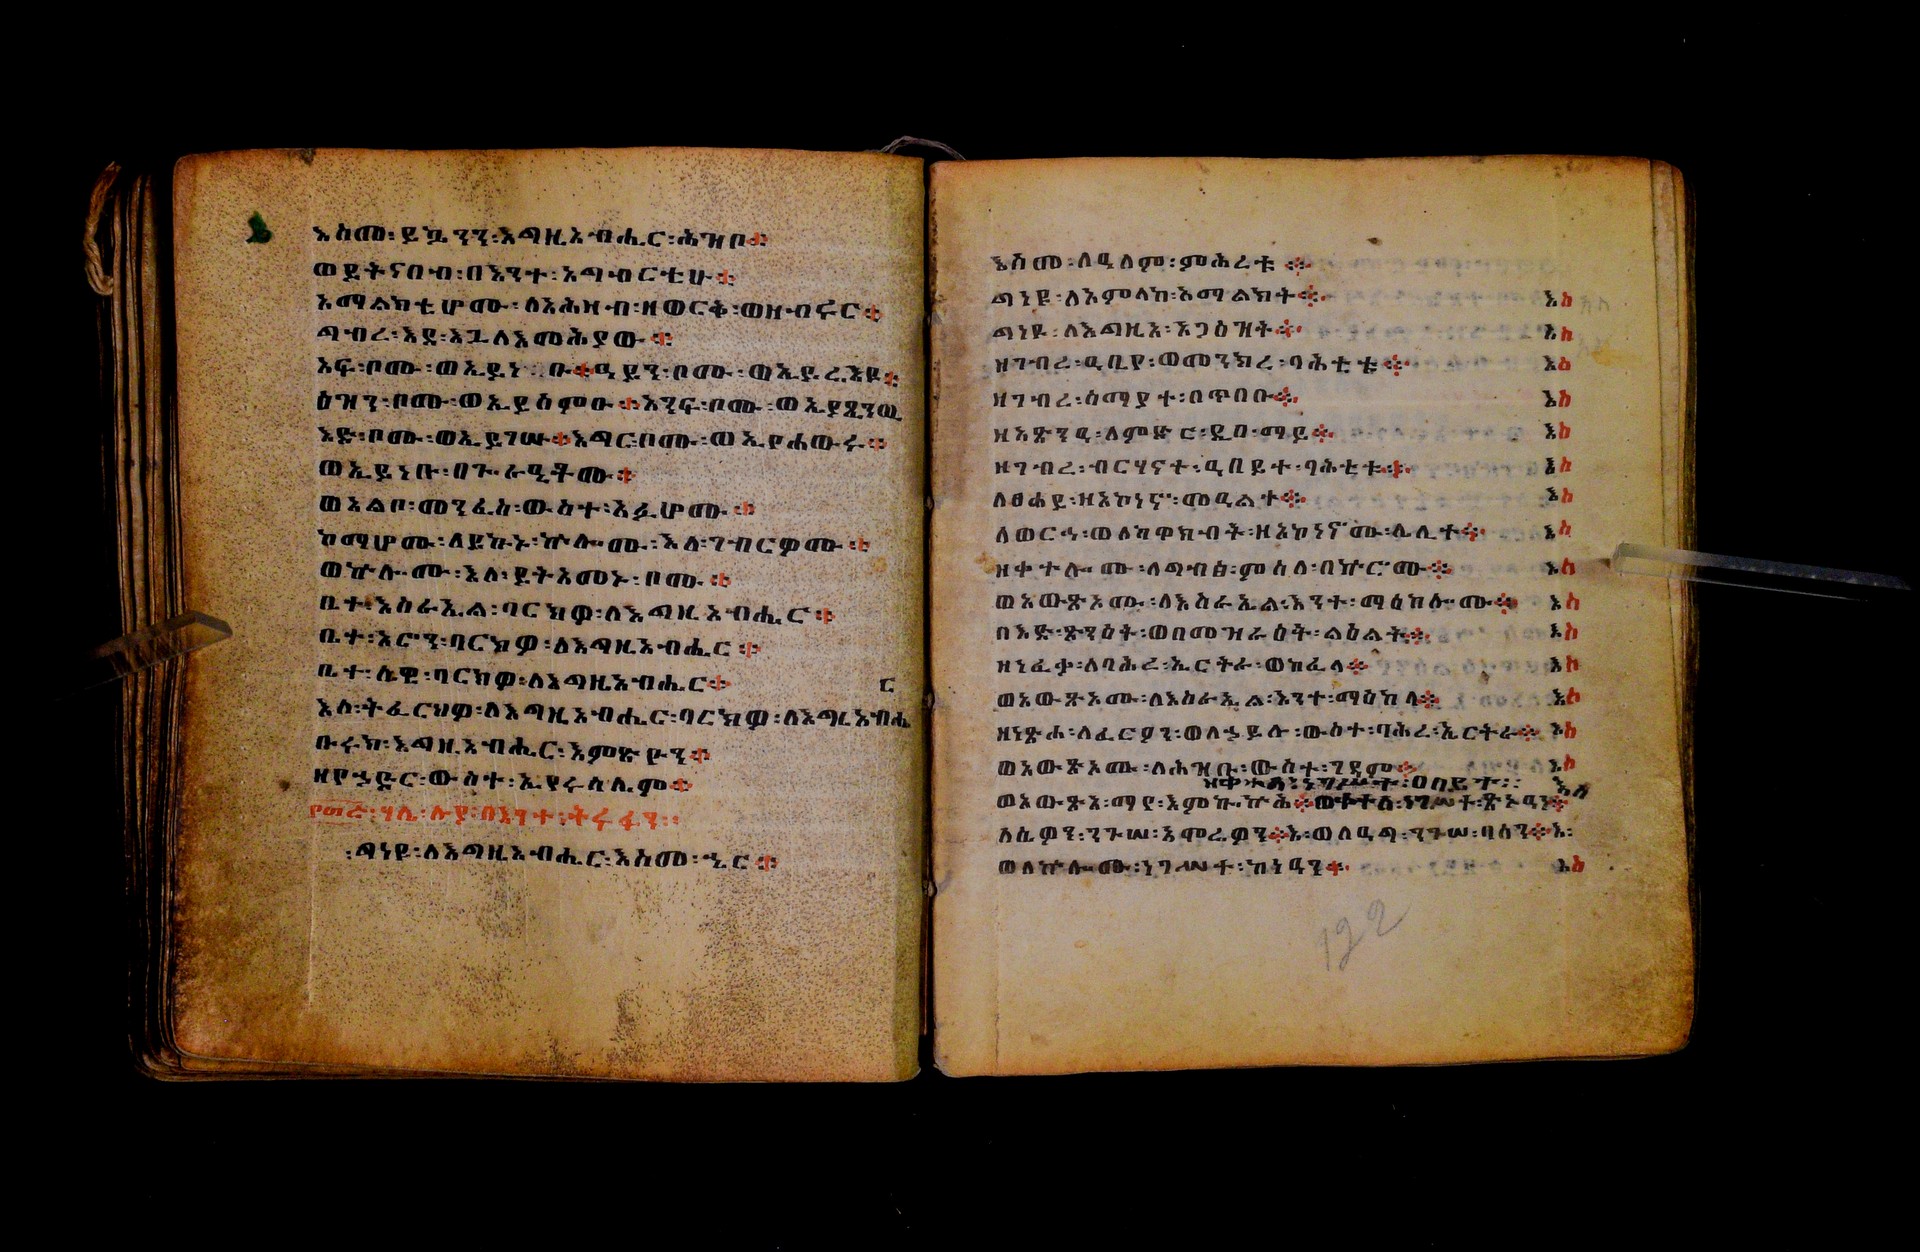 እስመ፡ይኴንን፡እግዚአብሔር፡ሕዝቦ።
ወይትናበብ፡በእንተ፡አግብርቲሁ።
አማልክቲሆሙ፡ለአሕዛብ፡ዘወርቅ፡ወዘብሩር።
ግብረ፡እደ፡እጓለእመሕያው።
አፍ፡ቦሙ፡ወኢይነ ቡ።ዓይን፡ቦሙ፡ወኢይሬእዩ።
ዕዝን፡ቦሙ፡ወኢይሰምዑ።አንፍ፡ቦሙ፡ወኢያጼንዉ
እድ፡ቦሙ፡ወኢይገሡ።እግር፡ቦሙ፡ወኢየሐውሩ።
ወኢይነቡ፡በጉራዒቶሙ።
ወአልቦ፡መንፈስ፡ውስተ፡አፉሆሙ።
ከማሆሙ፡ለይኩኑ፡ኵሎሙ፡እለ፡ገብርዎሙ።
ወኵሎሙ፡እለ፡ይትአመኑ፡ቦሙ።
ቤተ፡እስራኤል፡ባርክዎ፡ለእግዚአብሔር።
ቤተ፡አሮን፡ባርክዎ፡ለእግዚአብሔር።
ቤተ፡ሌዊ፡ባርክዎ፡ለእግዚአብሔር።
ር
እለ፡ትፈርህዎ፡ለእግዚአብሔር፡ባርክዎ፡ለእግዚአብሔ
ቡሩክ፡እግዚአብሔር፡እምጽዮን።
ዘየኀድር፡ውስተ፡ኢየሩሳሌም።
ሃሌ፡ሉያ፡በእንተ፡ትሩፋን።
ግነዩ፡ለእግዚአብሔር፡እስመ፡ኄር።
እስመ፡ለዓለም፡ምሕረቱ።
ግነዩ፡ለአምላከ፡አማልክት። እስ
ግነዩ፡ለእግዚአ፡አጋዕዝት። እስ
ዘገብረ፡ዓቢየ፡ወመንክረ፡ባሕቲቱ። እስ
ዘገብረ፡ሰማያተ፡በጥበቡ። እስ
ዘአጽንዓ፡ለምድር፡ዲበ፡ማይ። እስ
ዘገብረ፡ብርሃናተ፡ዓበይተ፡ባሕቲቱ። እስ
ለፀሐይ፡ዘአኮነኖ፡መዓልተ። እስ
ለወርኅ፡ወለከዋክብት፡ዘአኮነኖሙ፡ሌሊተ። እስ
ዘቀተሎሙ፡ለግብፅ፡ምስለ፡በኵሮሙ። እስ
ወአውጽኦሙ፡ለእስራኤል፡እንተ፡ማዕከሎሙ። እስ
በእድ፡ጽንዕት፡ወበመዝራዕት፡ልዕልት። እስ
ዘነፈቃ፡ለባሕረ፡ኤርትራ፡ወከፈላ። እስ
ወአውጽኦሙ፡ለእስራኤል፡እንተ፡ማዕከላ። እስ
ዘነጽሐ፡ለፈርዖን፡ወለኀይሉ፡ውስተ፡ባሕረ፡ኤርትራ። እስ
ወአውጽኦሙ፡ለሕዝቡ፡ውስተ፡ገዳም። እስ
ዘቀተለ፡ነገሥተ፡ዐበይተ፡ እስ
ወአውጽአ፡ማየ፡እምኰኵሕ።ወቀተለ፡ነገሥተ፡ጽኑዓነ።
ለሴዎን፡ንጉሠ፡አሞሬዎን።እ፡ወለዓግ፡ንጉሠ፡ባሳን።እ፡
ወለኵሎሙ፡ነገሥተ፡ከነዓን። እስ
122